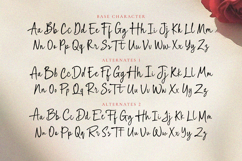 BASE CHARACTER
Aa Bb Cc Dd Ee Ff Gg Hh Ii Jj Kk Ll Mm
Nn Oo Pp Qq Rr Ss Tt Uu Vv Ww Xx Yy Zz
ALTERNATES 1
Aa Bb Cc Dd Ee Ff Gg Hh Ii Jj Kk Ll Mm
Nn Oo Pp Qq Rr Ss Tt Uu Vv Ww Xx Yy Zz
ALTERNATES 2
Aa Bb Cc Dd Ee Ff Gg Hh Ii Jj Kk Ll Mm
Nn Oo Pp Qq Rr Ss Tt Uu Vv Ww Xx Yy Zz